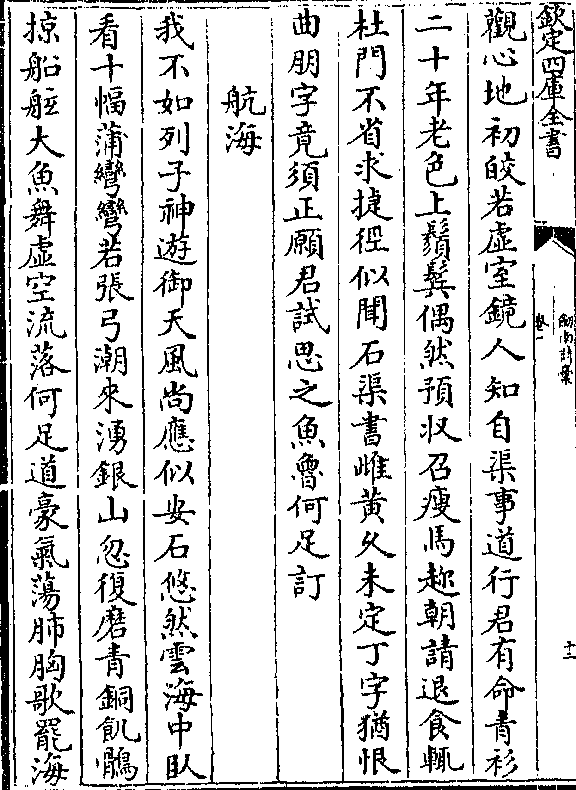 欽定四庫全書
劒南詩稾
卷一
十二
觀心地初皎若虛室鏡人知自渠事道行君有命青衫
二十年老色上鬚鬓偶然預收召瘦馬趂朝請退食輒
杜門不省求捷徑似聞石渠書雌黃久未定丁字猶恨
曲朋字竟須正願君試思之魚魯何足訂
航海
我不如列子神遊御天風尚應似安石悠然雲海中臥
看十幅蒲彎彎若張弓潮來湧銀山忽復磨青銅飢鶻
掠船舷大魚舞虛空流落何足道豪氣蕩肺胸歌罷海